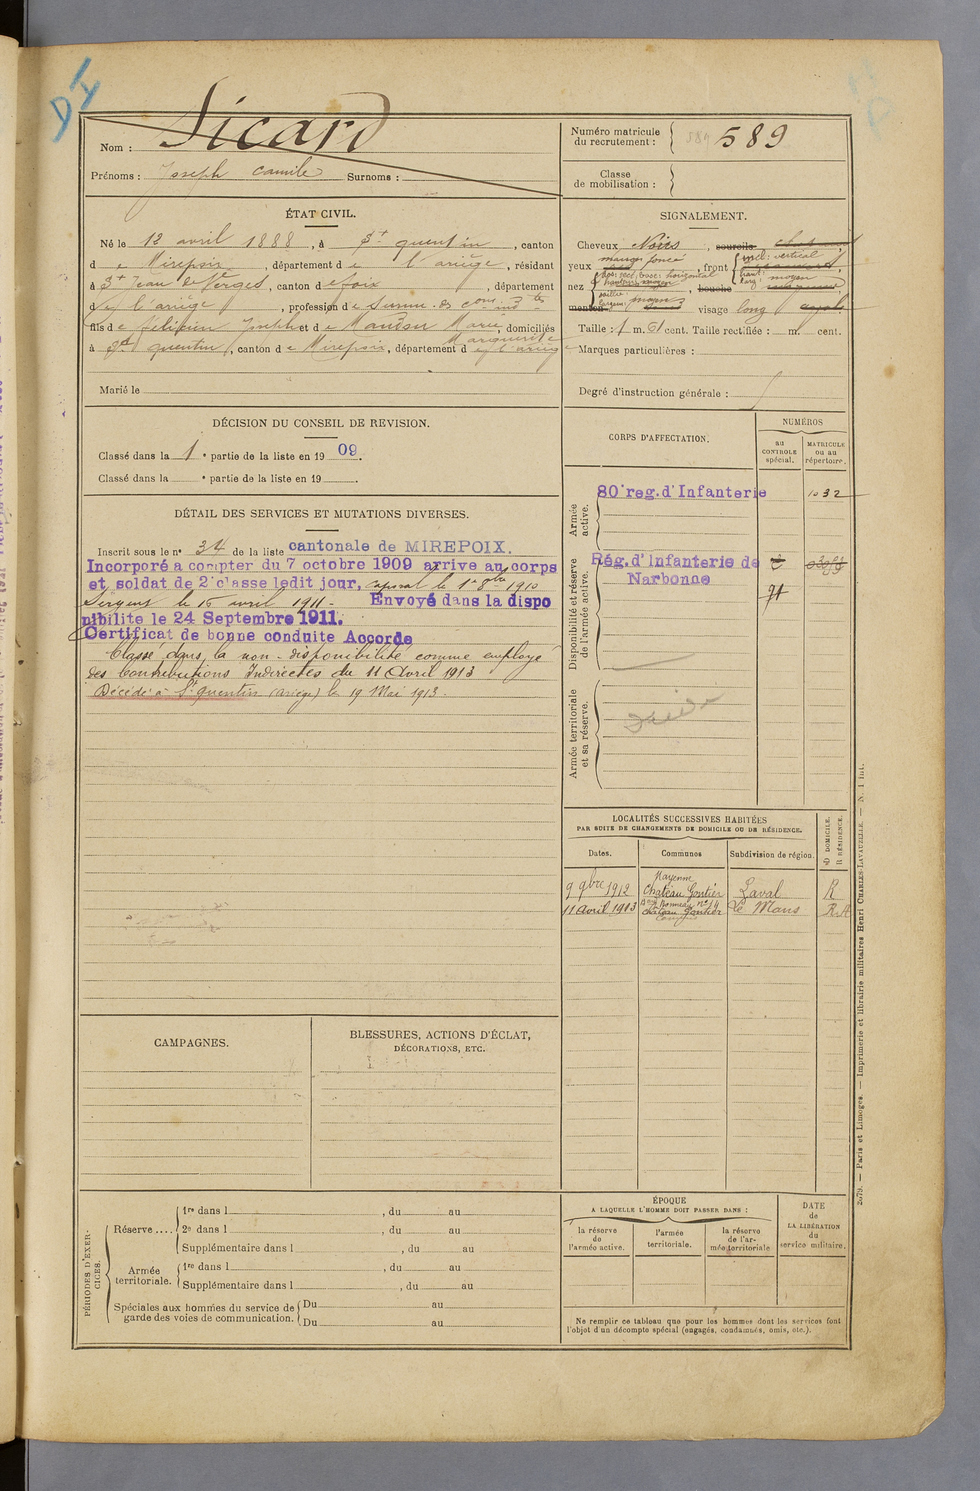 DI
Nom : Sicard
Prénoms : Joseph Camile Surnoms :
Numéro matricule du recrutement : 589 589
Classe de mobilisation :
ÉTAT CIVIL.
Né le 12 avril 1888, à St quentin, canton
d e Mirepoix, département d e l'ariège, résidant
à St Jean de Verges, canton d e foix, département
d e l'ariège, profession d e Surnum. des Cons. Indtes
fils d e felicien Joseph et d e Marie Marguerite, domiciliés
à St quentin, canton d e Mirepoix, département d e l'ariège
Marié le
SIGNALEMENT.
Cheveux Noirs, sourcils
yeux marron foncé, front incl: vertical
haut: larg: moyen
nez dos: rect, base: horizontal
hauteur: moyen
saillie largeur: moyen
bouche
menton visage long
Taille : 1 m. cent. Taille rectifiée : m. cent.
Marques particulières :
Degré d'instruction générale :
DÉCISION DU CONSEIL DE REVISION.
Classé dans la 1e partie de la liste en 1909.
Classé dans la e partie de la liste en 19
DÉTAIL DES SERVICES ET MUTATIONS DIVERSES.
Inscrit sous le no 34 de la liste cantonale de MIREPOIX.
Incorporé a compter du 7 octobre 1909 arrive au corps
et soldat de 2e classe ledit jour, caporal le 1er 8bre 1910
Sergent le 16 avril 1911 - Envoyé dans la dispo
nibilite le 24 Septembre 1911.
Certificat de bonne conduite Accorde
Classé dans la non-disponibilité comme employé
des Contributions Indirectes du 11 Avril 1913
Décédé à St quentin (Ariège) le 19 Mai 1913.
CORPS D'AFFECTATION.
NUMÉROS
au CONTROLE spécial.
MATRICULE ou au répertoire.
Armée active.
80e reg. d'Infanterie 1032
Disponibilité et réserve de l'armée active.
Rég. d'Infanterie de
Narbonne
Armée territoriale et sa réserve.
LOCALITÉS SUCCESSIVES HABITÉES
PAR SUITE DE CHANGEMENTS DE DOMICILE OU DE RÉSIDENCE.
Dates.
Communes
Subdivision de région.
D DOMICILE.
R RÉSIDENCE.
9 9bre 1912 Mayenne Château Gontier Laval R
11 Avril 1913 Château Gontier Le Mans R
CAMPAGNES.
BLESSURES, ACTIONS D'ÉCLAT,
DÉCORATIONS, ETC.
PÉRIODES D'EXERCICES.
Réserve ....
1re dans l , du au
2e dans l , du au
Supplémentaire dans l , du au
Armée territoriale.
1re dans l , du au
Supplémentaire dans l , du au
Spéciales aux hommes du service de garde des voies de communication.
Du au
Du au
ÉPOQUE
A LAQUELLE L'HOMME DOIT PASSER DANS :
la réserve de l'armée active.
l'armée territoriale.
la réserve de l'armée territoriale
DATE de LA LIBÉRATION du service militaire.
Ne remplir ce tableau que pour les hommes dont les services font
l'objet d'un décompte spécial (engagés, condamnés, omis, etc.).
2079. — Paris et Limoges. — Imprimerie et librairie militaires Henri CHARLES-LAVAUZELLE. — N. 1 int.